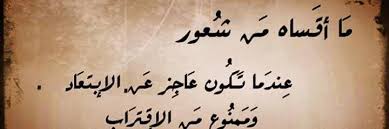 ما أقساه من شعور
عندما تكون عاجز عن الإبتعاد .
وممنوع من الاقتراب